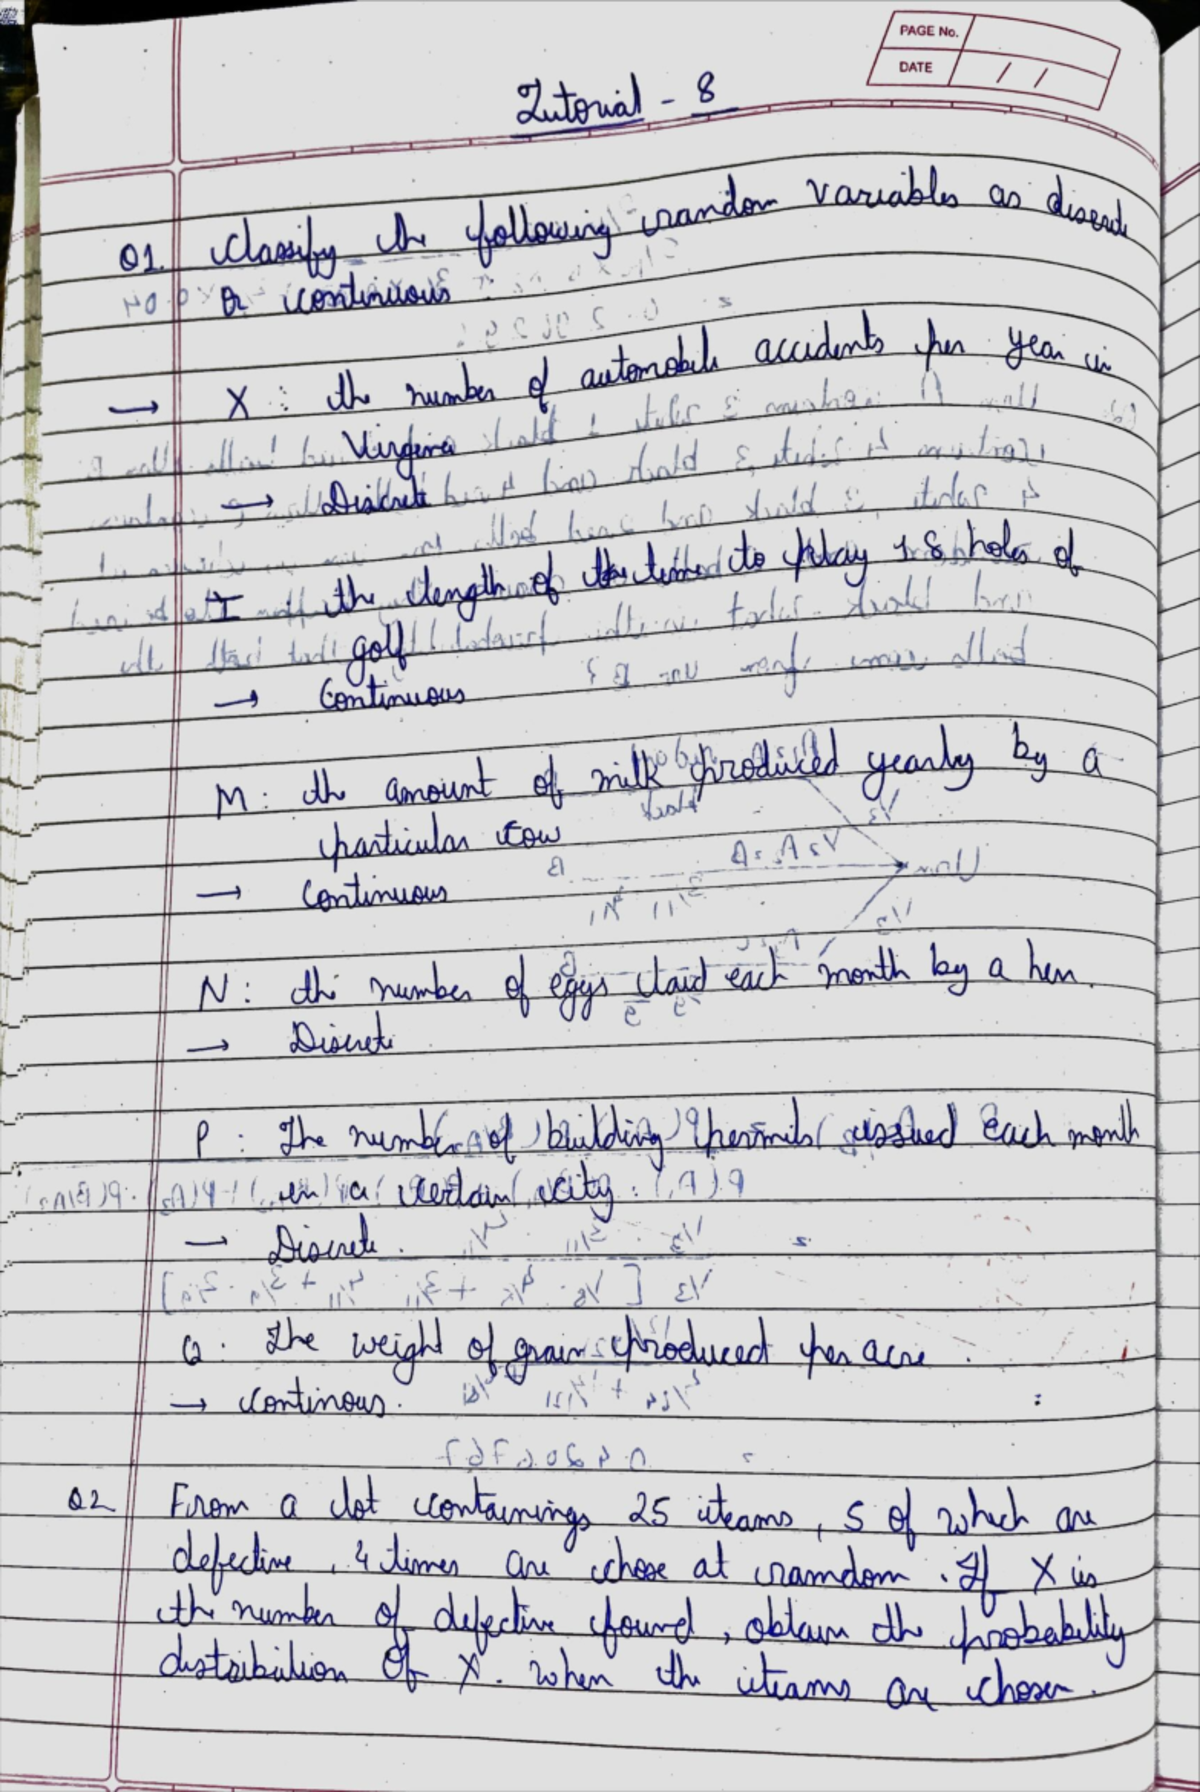 PAGE No.
DATE / /
Tutorial - 8
Q1. Classify the following random variables as discrete
or continuous
→ X : the number of automobile accidents per year in
Virginia
→ Discrete
T the length of the time to play 18 holes of
golf
→ Continuous
M : the amount of milk produced yearly by a
particular cow
→ Continuous
N : the number of eggs laid each month by a hen.
→ Discrete
P : The number of building permits issued each month
in a certain city.
→ Discrete.
Q. The weight of grain produced per acre.
→ continous.
Q2 From a lot containings 25 iteams, 5 of which are
defective, 4 times are chose at ramdom. If X is
the number of defective found, obtain the probability
distribution of X. when the iteams are chosen.